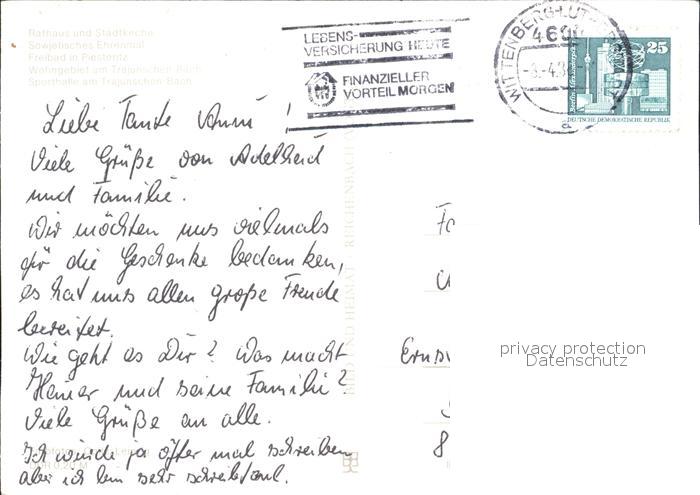 Rathaus und Stadtkirche
Sowjetisches Ehrenmal
Freibad in Piesteritz
Wohngebiet am Trajunschen Bach
Sporthalle am Trajunschen Bach
LEBENS-
VERSICHERUNG HEUTE
FINANZIELLER
VORTEIL MORGEN
WITTENBERG LUT
4600
25
DEUTSCHE DEMOKRATISCHE REPUBLIK
Liebe Tante Anni!
Viele Grüße von Adelheid
und Familie.
Wir möchten uns vielmals
für die Geschenke bedanken,
es hat uns allen große Freude
bereitet.
Wie geht es Dir? Was macht
Heiner und seine Familie?
Viele Grüße an alle.
Ich würde ja öfter mal schreiben
aber ich bin sehr schreibfaul.
BILD UND HEIMAT REICHENBACH
8
privacy protection
Datenschutz